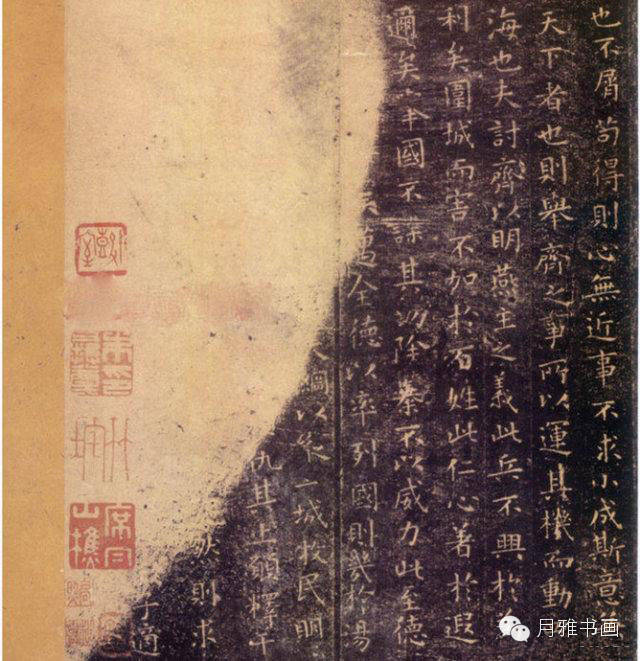 也不屑苟得則心無近事不求小成斯意
天下者也則舉齊之事所以運其機而動
海也夫討齊以明燕主之義此兵不興於
利矣圍城而害不加於百姓此仁心著於遐
邇矣舉國不謀其功除暴不以威力此至德
邁全德以率列國則幾於湯
綱以縱二城牧民明
仇其上願釋干
然則求
子適
月雅书画